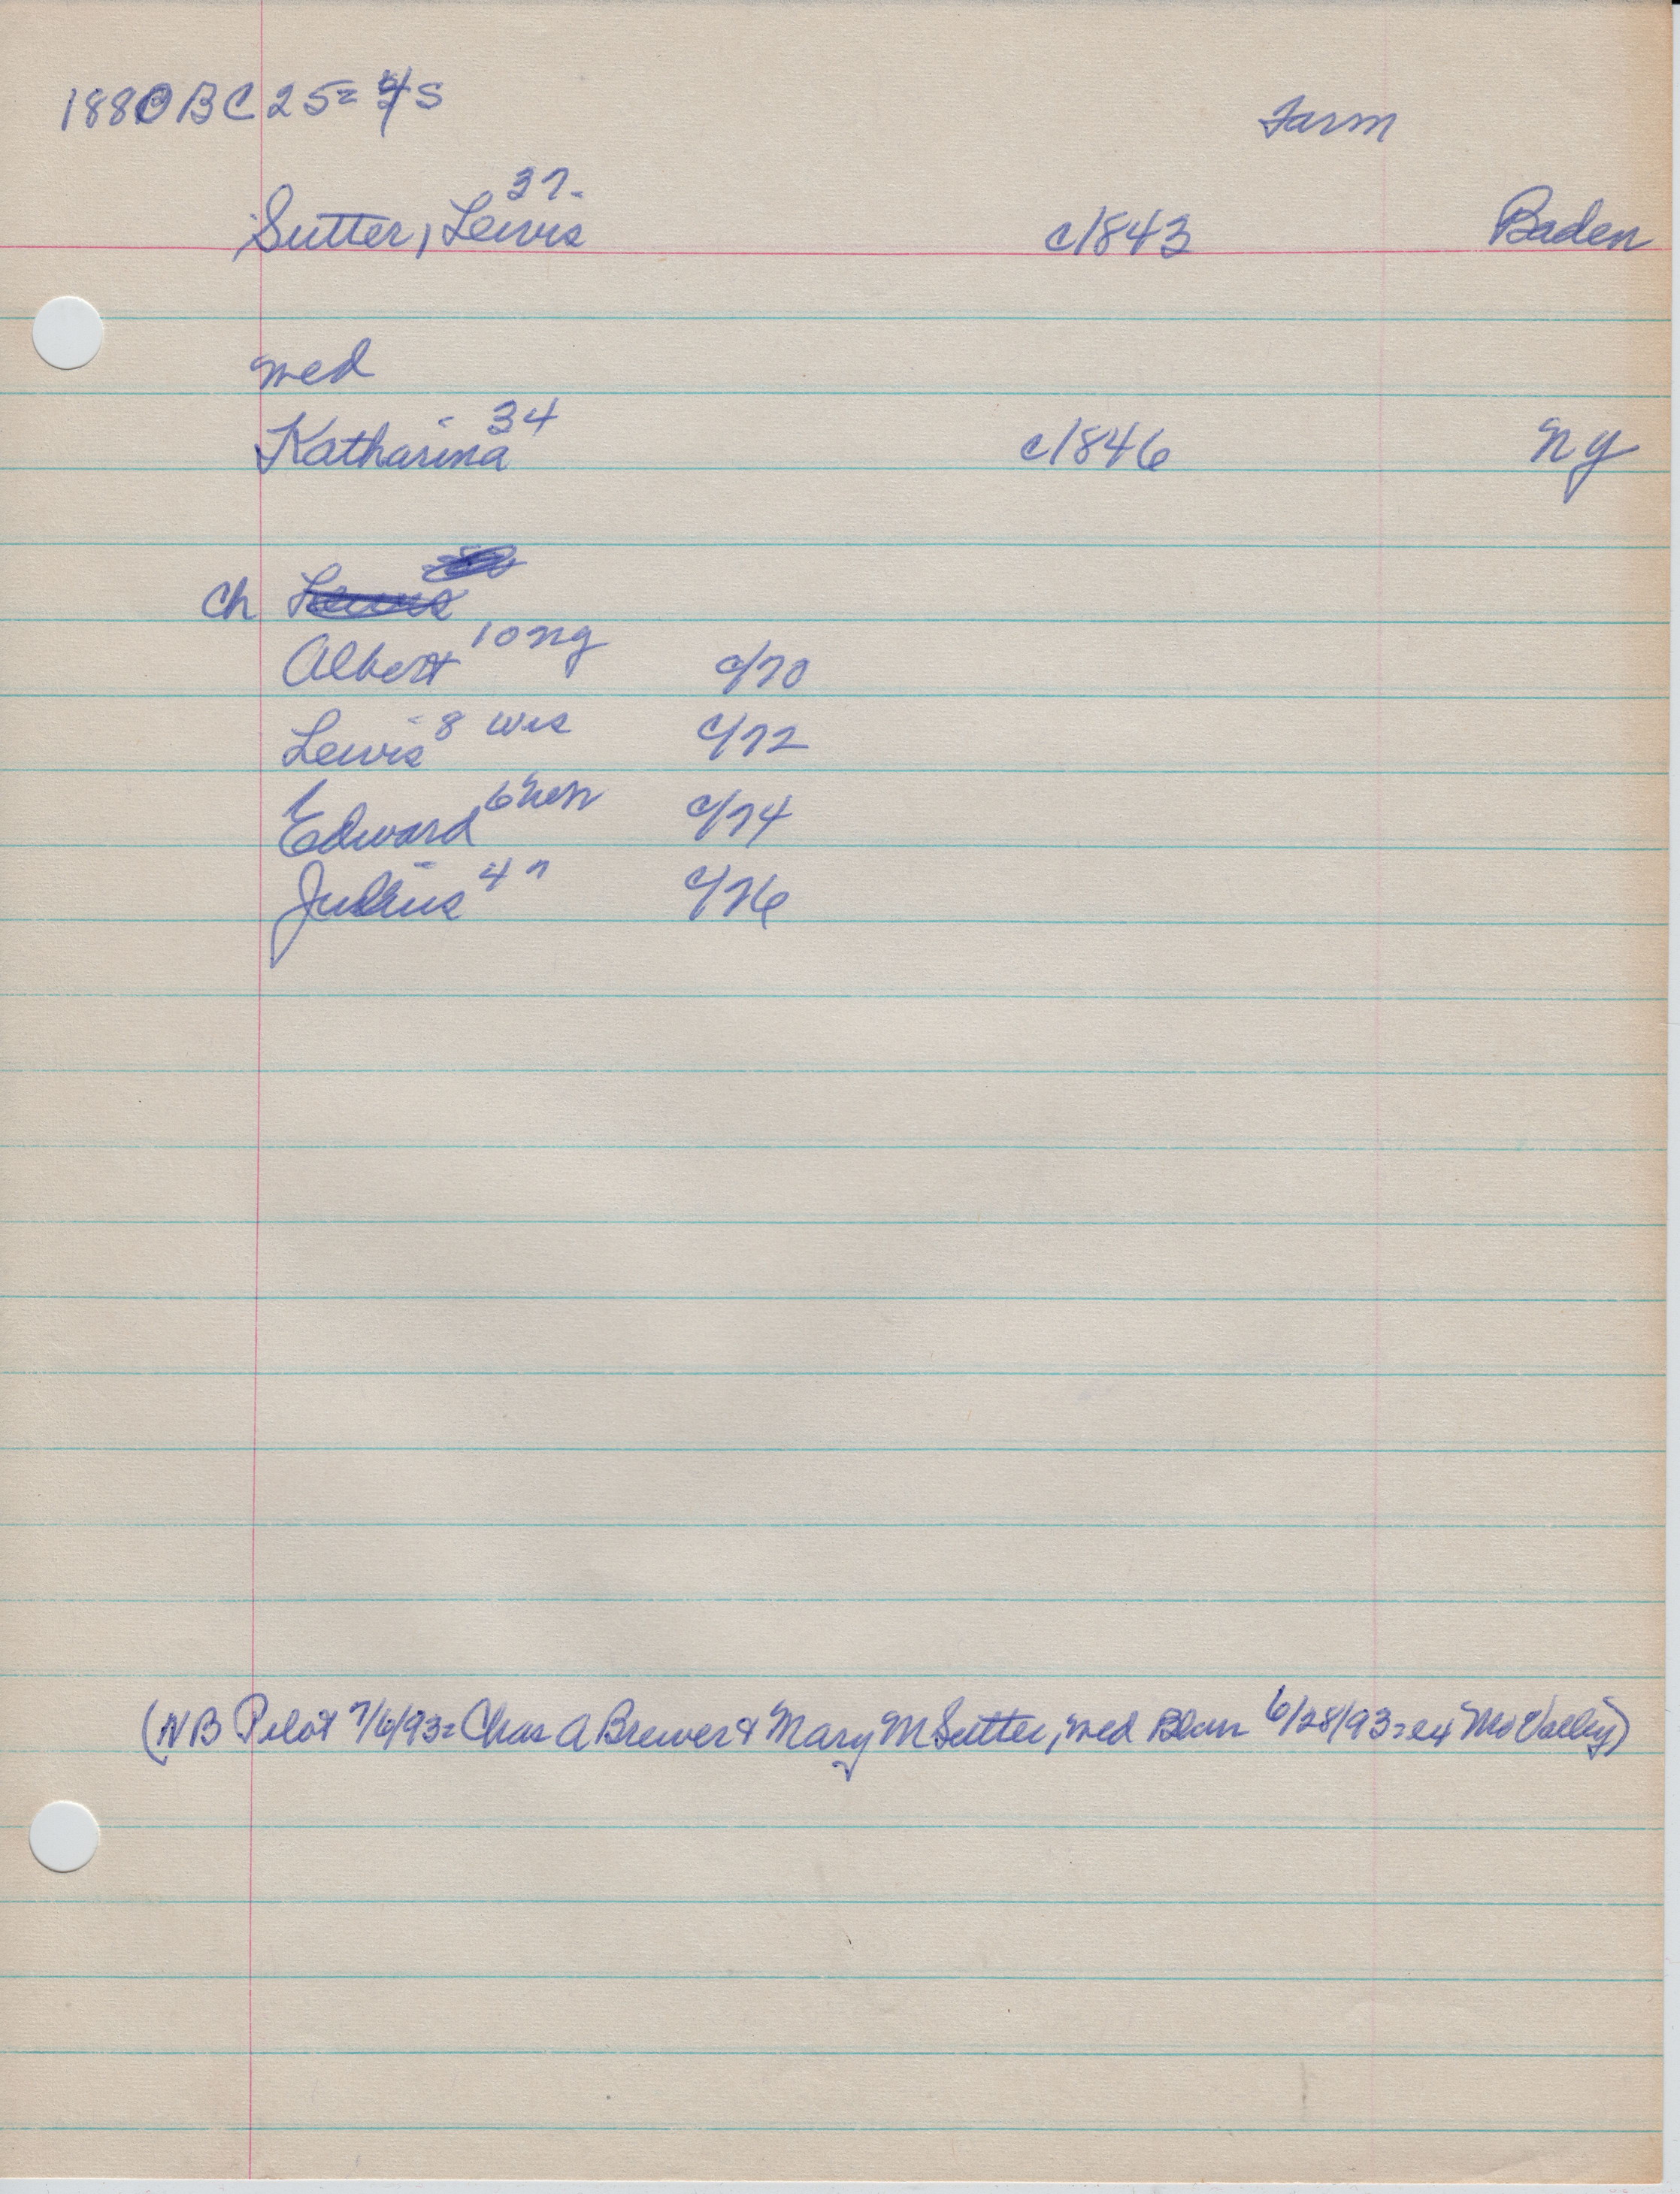 1880 BC 25= 4/5
Farm
37
Sutter, Lewis c1843 Baden
med
34
Katharina c1846 NY
ch
Albert 10 NY c/70
Lewis 8 Wis c/72
Edward 6 c/74
Julius 4 " c/76
(NB Pilot 7/6/93= Chas A Brewer & Mary M Sutter, med Blair 6/28/93= ex Mo Valley)